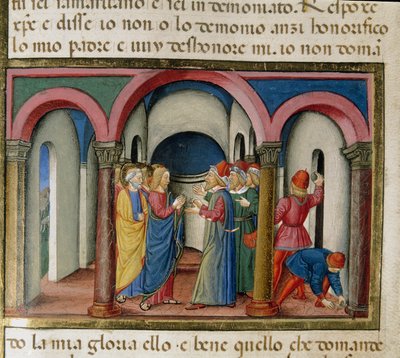 samaritano e sei indemoniato. Respoxe
xpe e disse io non o lo demonio anzi honorifico
lo mio padre e vuy deshonore mi. io non doma
do la mia gloria ello e bene quello che domande